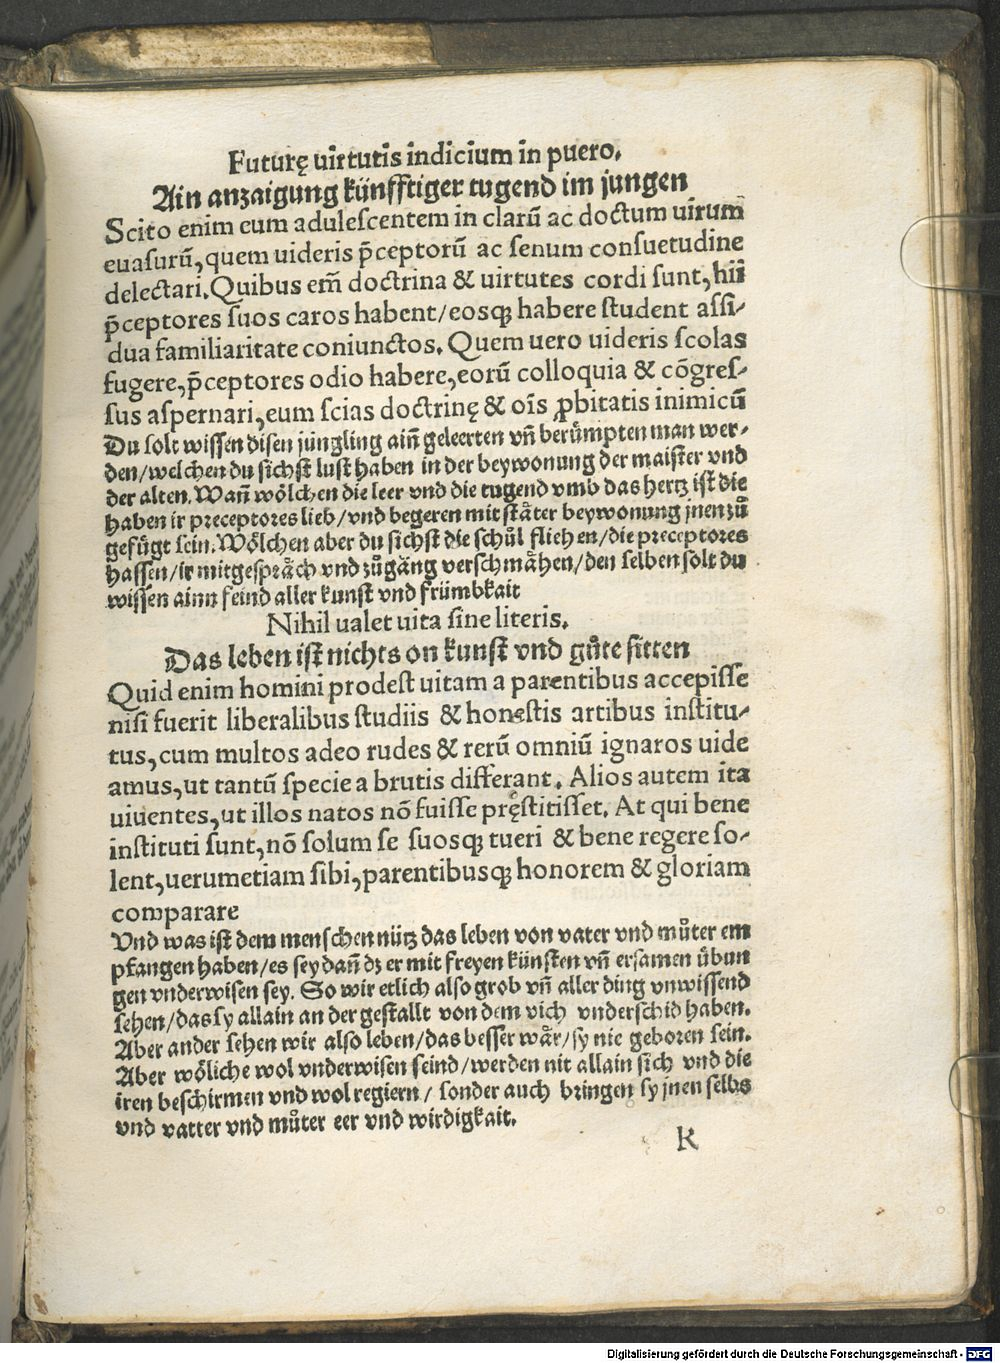 Futurę uirtutis indicium in puero.
Ain anzaigung künfftiger tugend im jungen
Scito enim eum adulescentem in clarū ac doctum uirum
euasurū, quem uideris p̄ceptorū ac senum consuetudine
delectari. Quibus em̄ doctrina & uirtutes cordi sunt, hii
p̄ceptores suos caros habent/eosqꝫ habere student assi-
dua familiaritate coniunctos. Quem uero uideris scolas
fugere, p̄ceptores odio habere, eorū colloquia & cōgres-
sus aspernari, eum scias doctrinę & oīs ꝓbitatis inimicū
Du solt wissen disen jüngling ain̄ geleerten vn̄ berümpten man wer-
den/welchen du sichst lust haben in der beywonung der maister vnd
der alten. Wan̄ wölchen die leer vnd die tugend vmb das hertz ist die
haben ir preceptores lieb/vnd begeren mit stäter beywonung jnen zů
gefügt sein. Wölchen aber du sichst die schůl fliehen/die preceptores
hassen/ir mitgespräch vnd zůgäng verschmähen/den selben solt du
wissen ainn feind aller kunst vnd frümbkait
Nihil ualet uita sine literis.
Das leben ist nichts on kunst vnd gůte sitten
Quid enim homini prodest uitam a parentibus accepisse
nisi fuerit liberalibus studiis & honestis artibus institu-
tus, cum multos adeo rudes & rerū omniū ignaros uide
amus, ut tantū specie a brutis differant. Alios autem ita
uiuentes, ut illos natos nō fuisse pręstitisset. At qui bene
instituti sunt, nō solum se suosqꝫ tueri & bene regere so-
lent, uerumetiam sibi, parentibusqꝫ honorem & gloriam
comparare
Vnd was ist dem menschen nütz das leben von vater vnd můter em
pfangen haben/es sey dan̄ dz er mit freyen künsten vn̄ ersamen übun
gen vnderwisen sey. So wir etlich also grob vn̄ aller ding vnwissend
sehen/das sy allain an der gestallt von dem vich vnderschid haben.
Aber ander sehen wir also leben/das besser wär/sy nie geboren sein.
Aber wöliche wol vnderwisen seind/werden nit allain sich vnd die
iren beschirmen vnd wol regiern/ sonder auch bringen sy jnen selbs
vnd vatter vnd můter eer vnd wirdigkait.
K
Digitalisierung gefördert durch die Deutsche Forschungsgemeinschaft - DFG